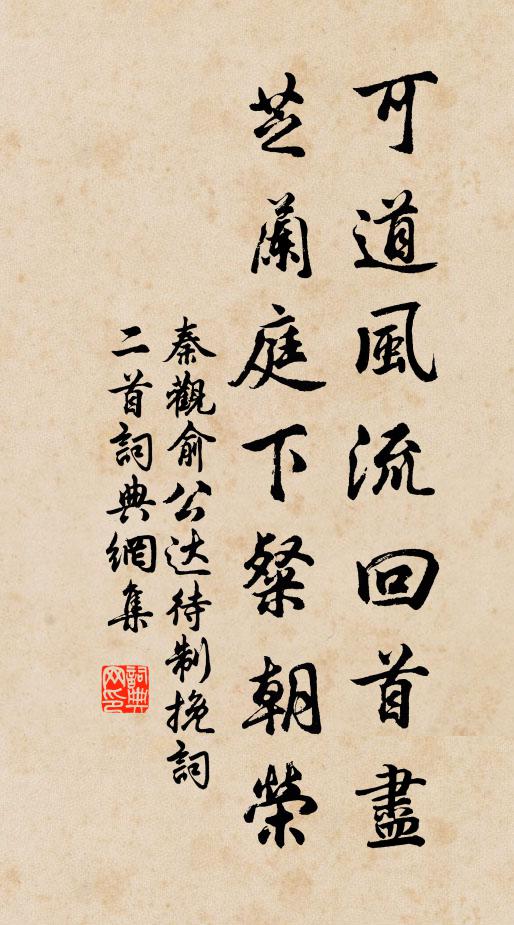 可道風流回首盡
芝蘭庭下粲朝榮
秦觀俞公达待制挽詞
二首詞典網集
詞典
网印